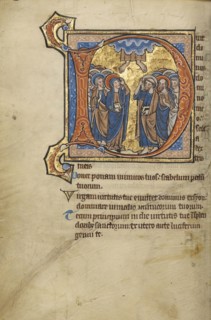 D
meis
Donec ponam inimicos tuos scabellum pedu
tuorum.
Virgam virtutis tue emittet dominus ex syon
dominare in medio inimicorum tuorum.
Tecum principium in die virtutis tue in splen
doribus sanctorum ex utero ante luciferum
genui te.